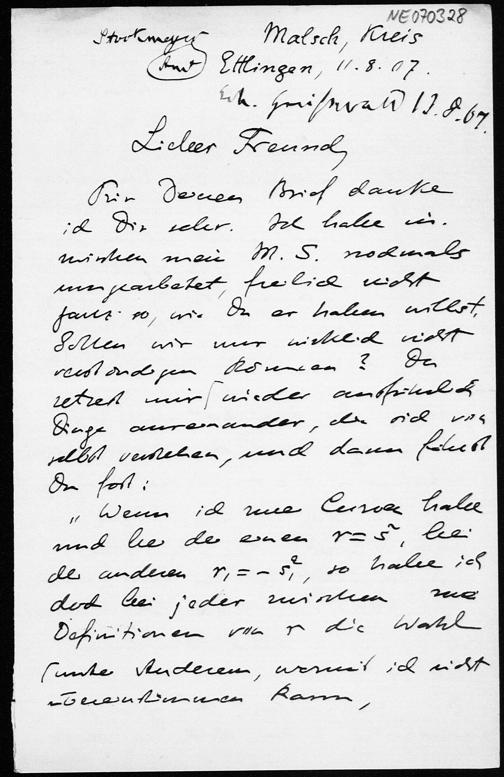 NE070328
Stockmeyer Malsch, Kreis
Amt Ettlingen, 11.8.07.
Greifswald 13.8.07.
Lieber Freund,
Für Deinen Brief danke
ich Dir sehr. Ich habe in-
zwischen mein M. S. nochmals
umgearbeitet, freilich nicht
ganz so, wie Du es haben willst.
Sollten wir uns wirklich nicht
verständigen können? Du
setzest mir wieder ausführlich
Dinge auseinander, die sich von
selbst verstehen, und dann fährst
Du fort:
„Wenn ich zwei Curven habe
und bei der einen r = s², bei
der anderen r₁ = - s₁², so habe ich
doch bei jeder zwischen zwei
Definitionen von r die Wahl
(unter Anderem, womit ich nicht
übereinstimmen kann,